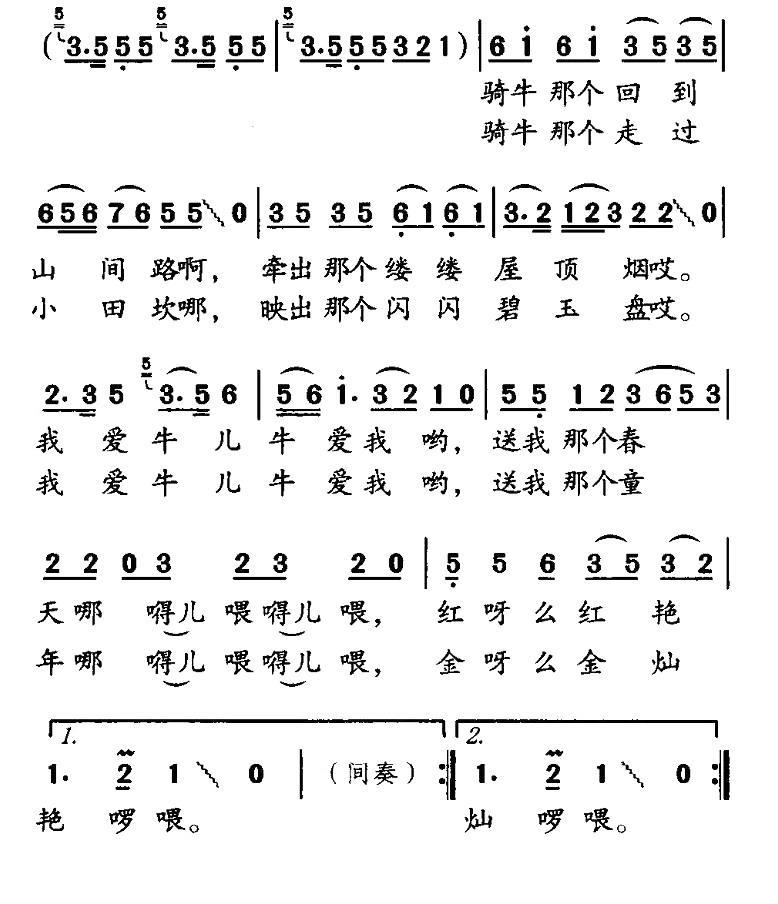 5 5 5
( 3. 5 5 5 3. 5 5 5 | 3. 5 5 5 3 2 1 ) | 6 1 6 1 3 5 3 5 |
骑牛 那个 回 到
骑牛 那个 走 过
6 5 6 7 6 5 5 0 | 3 5 3 5 6 1 6 1 | 3. 2 1 2 3 2 2 0 |
山 间 路啊， 牵出 那个 缕 缕 屋 顶 烟哎。
小 田 坎哪， 映出 那个 闪 闪 碧 玉 盘哎。
5
2. 3 5 3. 5 6 | 5 6 1. 3 2 1 0 | 5 5 1 2 3 6 5 3 |
我 爱 牛 儿 牛 爱 我 哟， 送我 那个 春
我 爱 牛 儿 牛 爱 我 哟， 送我 那个 童
2 2 0 3 2 3 2 0 | 5 5 6 3 5 3 2 |
天 哪 嘚儿 喂 嘚儿 喂， 红 呀 么 红 艳
年 哪 嘚儿 喂 嘚儿 喂， 金 呀 么 金 灿
1. 2.
1. 2 1 0 | （间奏） :| 1. 2 1 0 :|
艳 啰 喂。 灿 啰 喂。